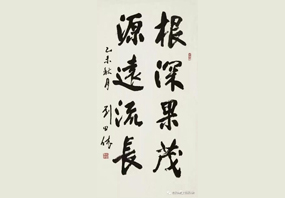 根深果茂
源遠流長
乙未秋月